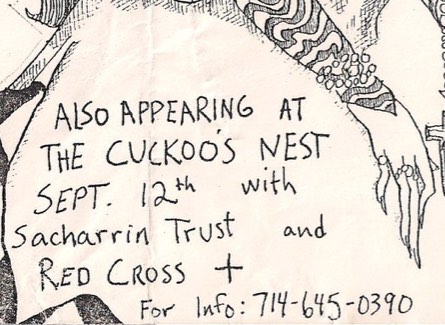 ALSO APPEARING AT
THE CUCKOO'S NEST
SEPT. 12th with
Sacharrin Trust and
RED CROSS +
For Info: 714-645-0390